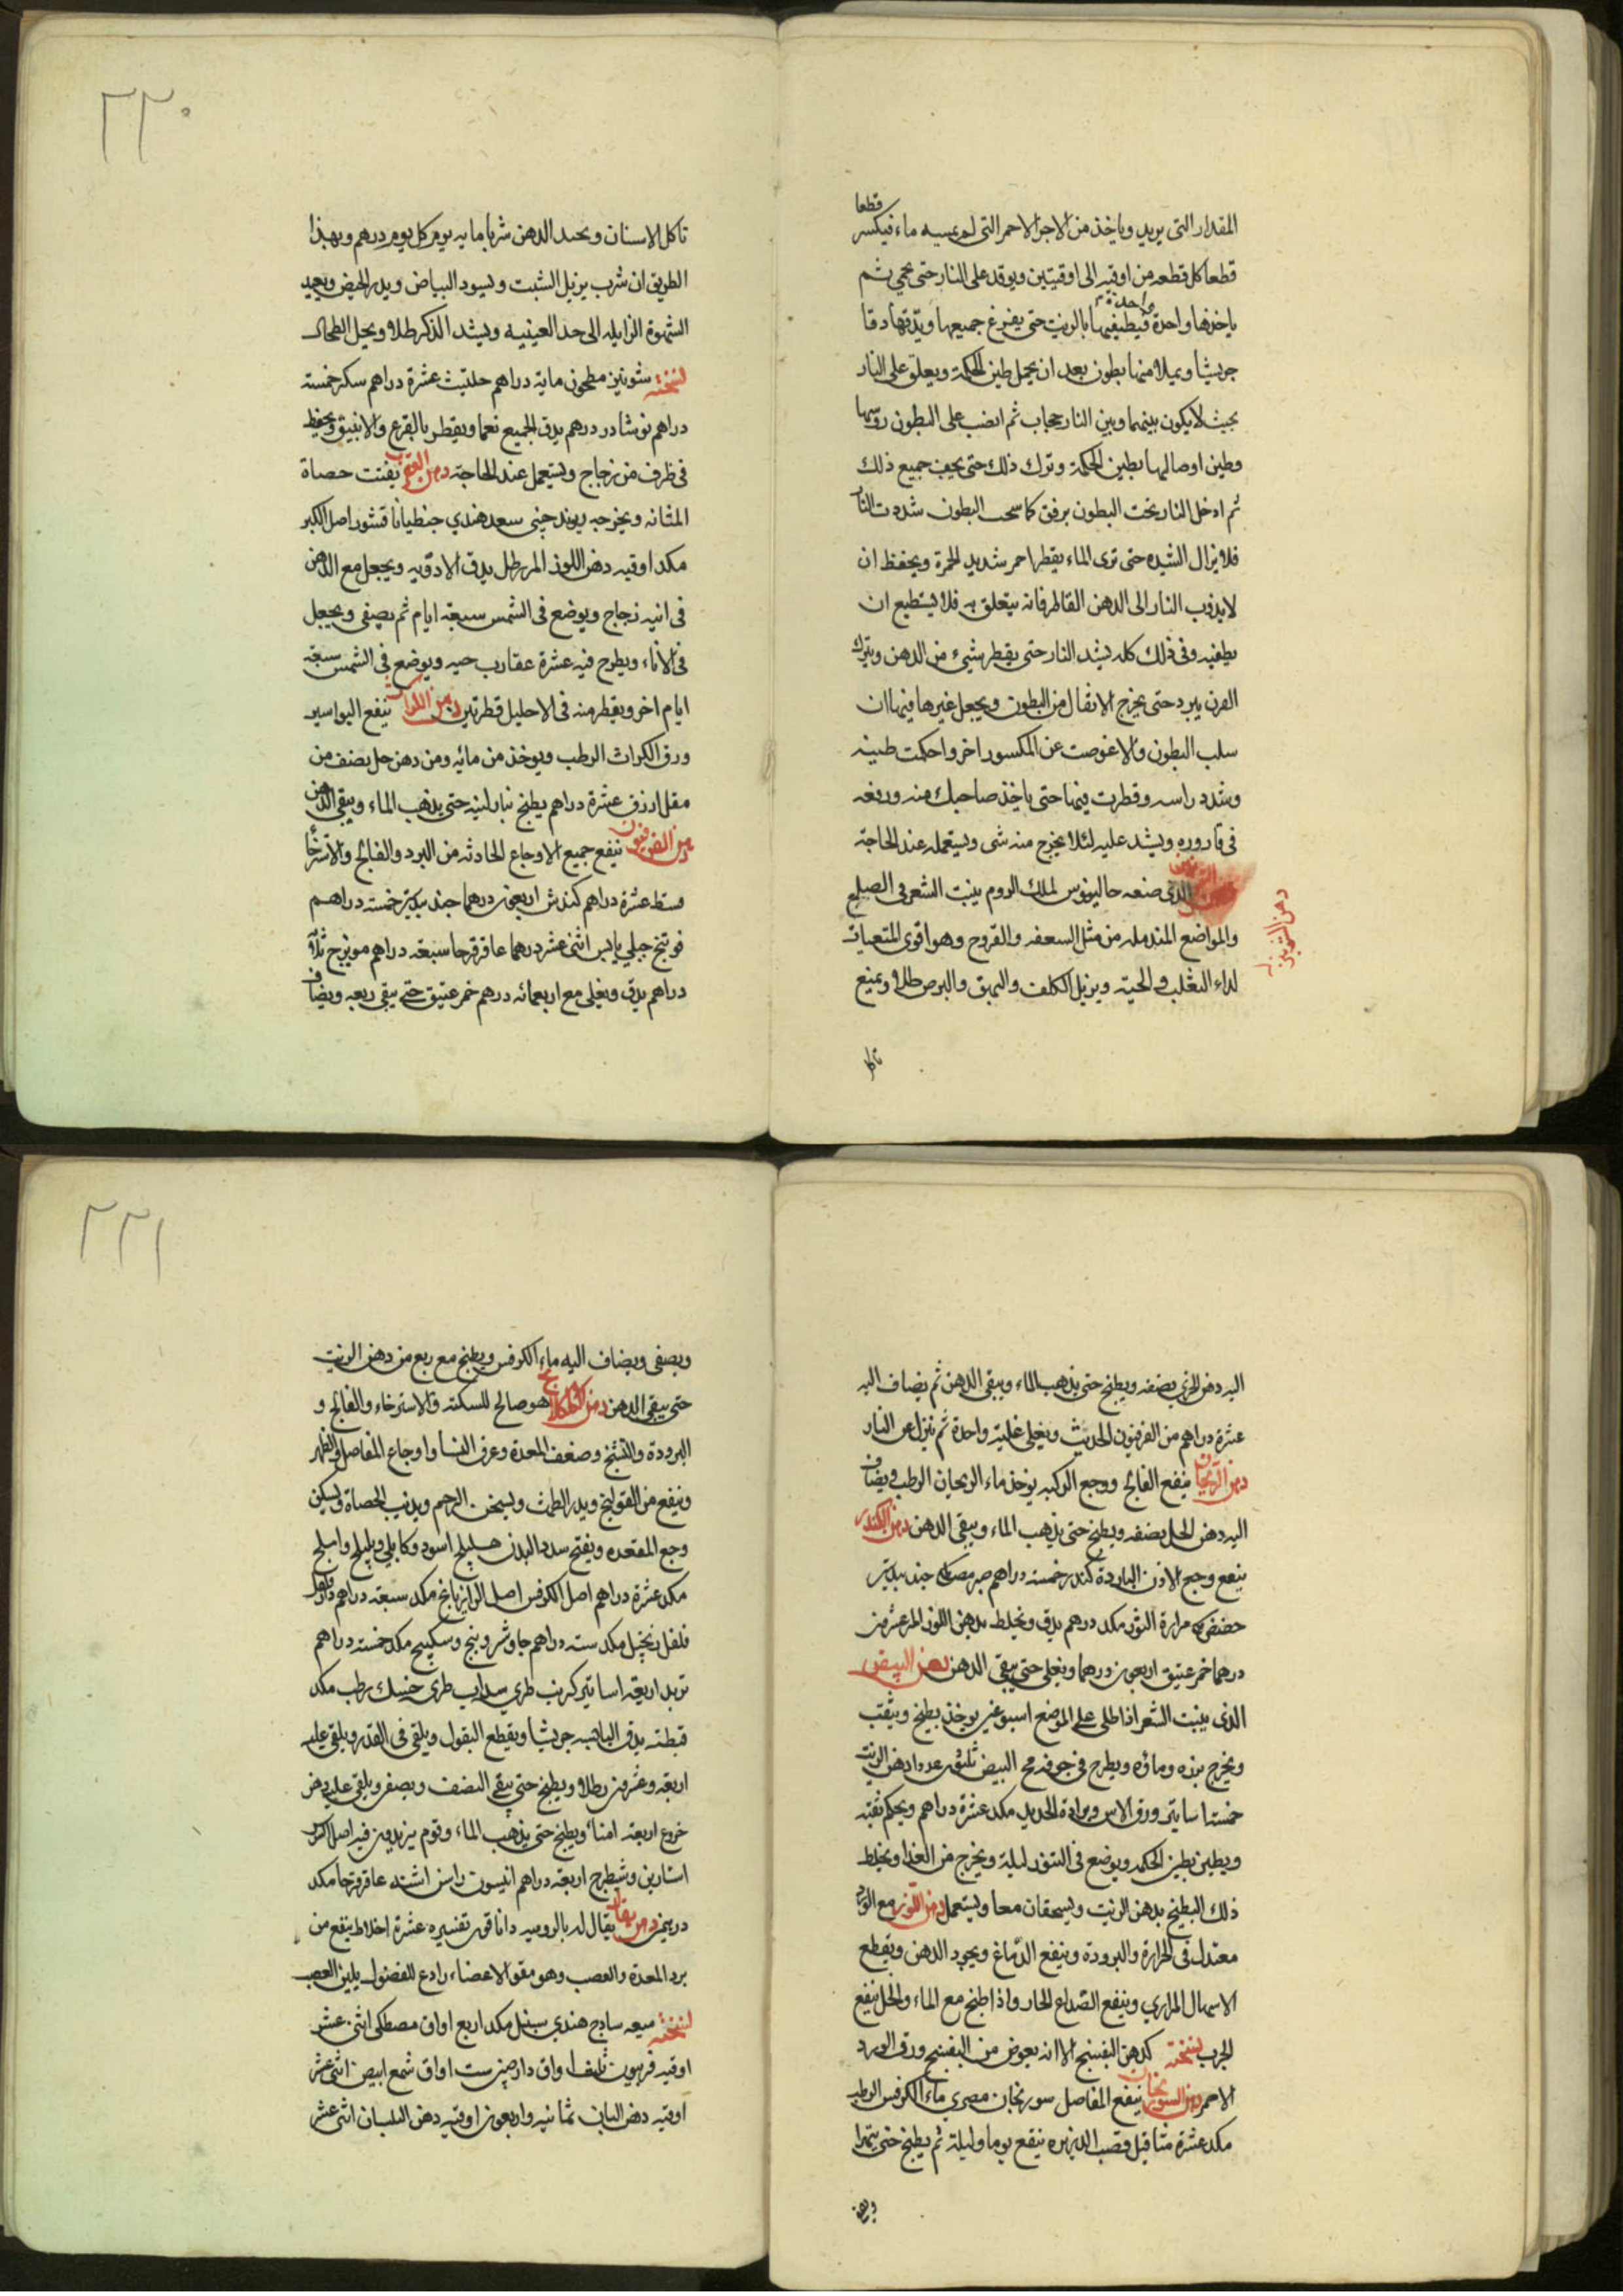 قطعا
المقدار التى يريد وياخذ من الاجر الاحمر التى لم يمسه ماء فيكسر
قطعا كل قطعه من اوقيه الى اوقيتين ويوقد على النار حتى يحمى ثم
ياخذها واحدة واحدة فيطفيها بالزيت حتى يفرغ جميعها ويدقها دقا
جريشا ويملا منها بطون بعد ان يعمل طين الحكمة ويعلق على النار
بحيث لا يكون بينهما وبين النار حجاب ثم انصب على البطون روسها
وطين اوصالها بطين الحكمة وترك ذلك حتى يجف جميع ذلك
ثم ادخل النار تحت البطون برفق كلما سخت البطون شددت النار
فلا يزال الشيده حتى ترى الماء يقطر احمر شديد الحمرة ويحفظ ان
لا يدنوب النار الى الدهن القاطر فانه يتعلق به فلا يستطيع ان
يطفيه وفى ذلك كله يشد النار حتى يقطر شىء من الدهن ويترك
الفرن يبرد حتى يخرج الاثفال من البطون ويجعل غيرها فيها ان
سلب البطون والا عوضت عن المكسور اخر واحكمت طينه
وشدد راسه وقطرت فيها حتى ياخذ صاحبك منه ورفعه
فى قاروره ويشد عليه لئلا يخرج منه شى ويستعمله عند الحاجة
الذى صنعه جالينوس لملك الروم ينبت الشعر فى الصلع
دهن الشونيز
والمواضع المندمله من مثل السعفه والقروح وهو اقوى المتعيات
لداء الثعلب والحيته ويزيل الكلف والبهق والبرص طلا ويمنع
تاكل
٢٢٠
تاكل الاسنان ويحد الدهن شربا مايه يوم كل يوم درهم وبهذا
الطريق ان شرب يزيل الشبت ويسود البياض ويدر الحيض ويعيد
الشهوة الزايله الى حد العينيه ويشد الذكر طلا ويحل الطحال
نسخته شونيز مطحون ماية دراهم حلتيث عشرة دراهم سكر خمسة
دراهم نوشادر درهم يدق الجميع نعما ويقطر بالقرع والانبيق ويحفظ
فى ظرف من زجاج ويستعمل عند الحاجة دهن العقرب يفتت حصاة
المثانه ويخرجه ريوند جينى سعد هندي جنطيانا قشور اصل الكبر
مكد اوقيه دهن اللوز المر رطل يدق الادويه ويجعل مع الدهن
فى انيه زجاج ويوضع فى الشمس سبعة ايام ثم يصفى ويجعل
فى الاناء ويطرح فيه عشرة عقارب حيه ويوضع فى الشمس سبعة
ايام اخر ويقطر منه فى الاحليل قطرتين دهن الكراث ينفع البواسير
ورق الكراث الرطب ويوخذ من مائه ومن دهن حل نصف من
مقل ازرق عشرة دراهم يطبخ بنار لينه حتى يذهب الماء ويبقى الدهن
دهن الفرفيون ينفع جميع الاوجاع الحادثه من البرد والفالج والاسترخا
قسط عشرة دراهم كندش اربعون درهما جند بيدستر خمسة دراهم
فوتنج جبلى يابس اثنى عشر درهما عاقرقرحا سبعة دراهم مويزج ثلاثة
دراهم يدق ويغلى مع اربعمائه درهم خمر عتيق حتى يبقى ربعه ويضاف
اليه دهن الخيري نصفه ويطبخ حتى يذهب الماء ويبقى الدهن ثم يضاف اليه
عشرة دراهم من الفرفيون الحديث ويغلى غلية واحدة ثم ينزل عن النار
دهن الريحان ينفع الفالج ووجع الركبه يوخذ ماء الريحان الرطب ويضاف
اليه دهن الحل نصفه ويطبخ حتى يذهب الماء ويبقى الدهن دهن الكندر
ينفع وجع الاذن الباردة كندر خمسة دراهم مر مصطكى جند بيدستر
حضض مكى مرارة الثور مكد درهم يدق ويخلط بدهن اللوز المر عشرين
درهما خمر عتيق اربعون درهما ويغلى حتى يبقى الدهن دهن البيض
الذى ينبت الشعر اذا طلى على الموضع اسبوعين يوخذ بطيخ ويثقب
ويخرج بزره وماؤه ويطرح فى جوفه مح البيض ثلثون عددا دهن الزيت
خمسة اساتير ورق الاس وبرادة الحديد مكد عشرة دراهم ويحكم ثقبه
ويطين بطين الحكمه ويوضع فى التنور ليلة ويخرج من الغد ويخلط
ذلك البطيخ بدهن الزيت ويسحقان معا ويستعمل دهن اللوز مع الورد
معتدل فى الحرارة والبرودة وينفع الدماغ ويجود الدهن ويقطع
الاسهال المراري وينفع الصداع الحار واذا طبخ مع الماء والخل ينفع
الجرب نسخته كدهن البنفسج الا انه يعوض من البنفسج ورق الورد
الاحمر دهن السورنجان ينفع المفاصل سورنجان مصري ماء الكرفس الرطب
مكد عشرة مثاقيل وقصب الذريره ينقع يوما وليلة ثم يطبخ حتى يتهرا
ويصفى
٢٢١
ويصفى ويضاف اليه ماء الكرفس ويطبخ مع ربع من دهن الزيت
حتى يبقى الدهن دهن الكلكلانج هو صالح للسكتة والاسترخاء والفالج و
البرودة والتشنج وضعف المعدة وعرق النسا واوجاع المفاصل والظهر
وينفع من القولنج ويدر الطمث ويسخن الرحم ويذيب الحصاة ويسكن
وجع المقعده ويفتح سدد البدن هليلج اسود وكابلي وبليلج واملج
مكد عشرة دراهم اصل الكرفس اصل الرازيانج مكد سبعة دراهم دارفلفل
فلفل زنجبيل مكد سته دراهم جاوشير وبنج وسكبينج مكد خمسة دراهم
تربد اربعة اساتير كرنب طري سداب طري حسك رطب مكد
قبضته يدق اليابسه جريشا ويقطع البقول ويلقى فى القدر ويلقى عليه
اربعة وعشرين رطلا ويطبخ حتى يبقى النصف ويصفى ويلقى عليه دهن
خروع اربعة امنا ويطبخ حتى يذهب الماء وقوم يزيدون فيه اصل الكبر
استارين وشيطرج اربعة دراهم انيسون راسن اشنه عاقرقرحا مكد
درهمين دهن يقال له بالروميه داناقون تفسيره عشرة اخلاط ينفع من
برد المعدة والعصب وهو مقو الاعضاء رادع للفضول يلين العصب
نسخته ميعه ساذج هندي سنبل مكد اربع اواق مصطكى اثنى عشر
اوقيه فربيون ثلث اواق دارصينى ست اواق شمع ابيض اثنى عشر
اوقيه دهن البان ثمانيه واربعون اوقيه دهن البلسان اثنى عشر